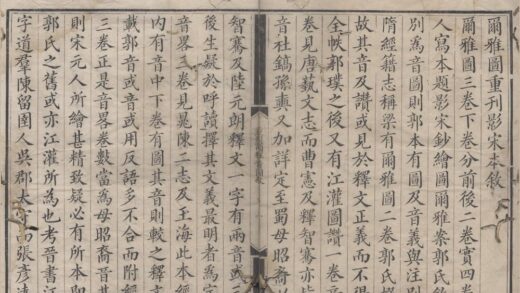 爾雅圖重刊影宋本敘
爾雅圖三卷下卷分前後二卷實四卷
人寫本題影宋鈔繪圖爾雅案郭氏敘
別為音圖則郭本有圖及音義與注別
隋經籍志稱梁有爾雅圖二卷郭
故其音及讚或見於釋文正義而不得
全帙郭璞之後又有江灌圖讚一卷音
卷見唐藝文志而曹憲及釋智騫亦
音杜鎬孫奭又加詳定至蜀毋昭裔
智騫及陸元朗釋文一字有兩音或
後生疑於呼讀擇其文義最明者為
音畧三卷見晁陳二志及玉海此本經
內有音中下卷有圖其音則較之釋
載郭音或音或用反語多不合而附經
三卷正是音畧卷數當為毋昭裔音其
則宋元人所繪甚精致疑必有所本即
郭氏之舊或亦江灌所為也考晉書江
字道羣陳留圉人吳郡太守而張彥遠